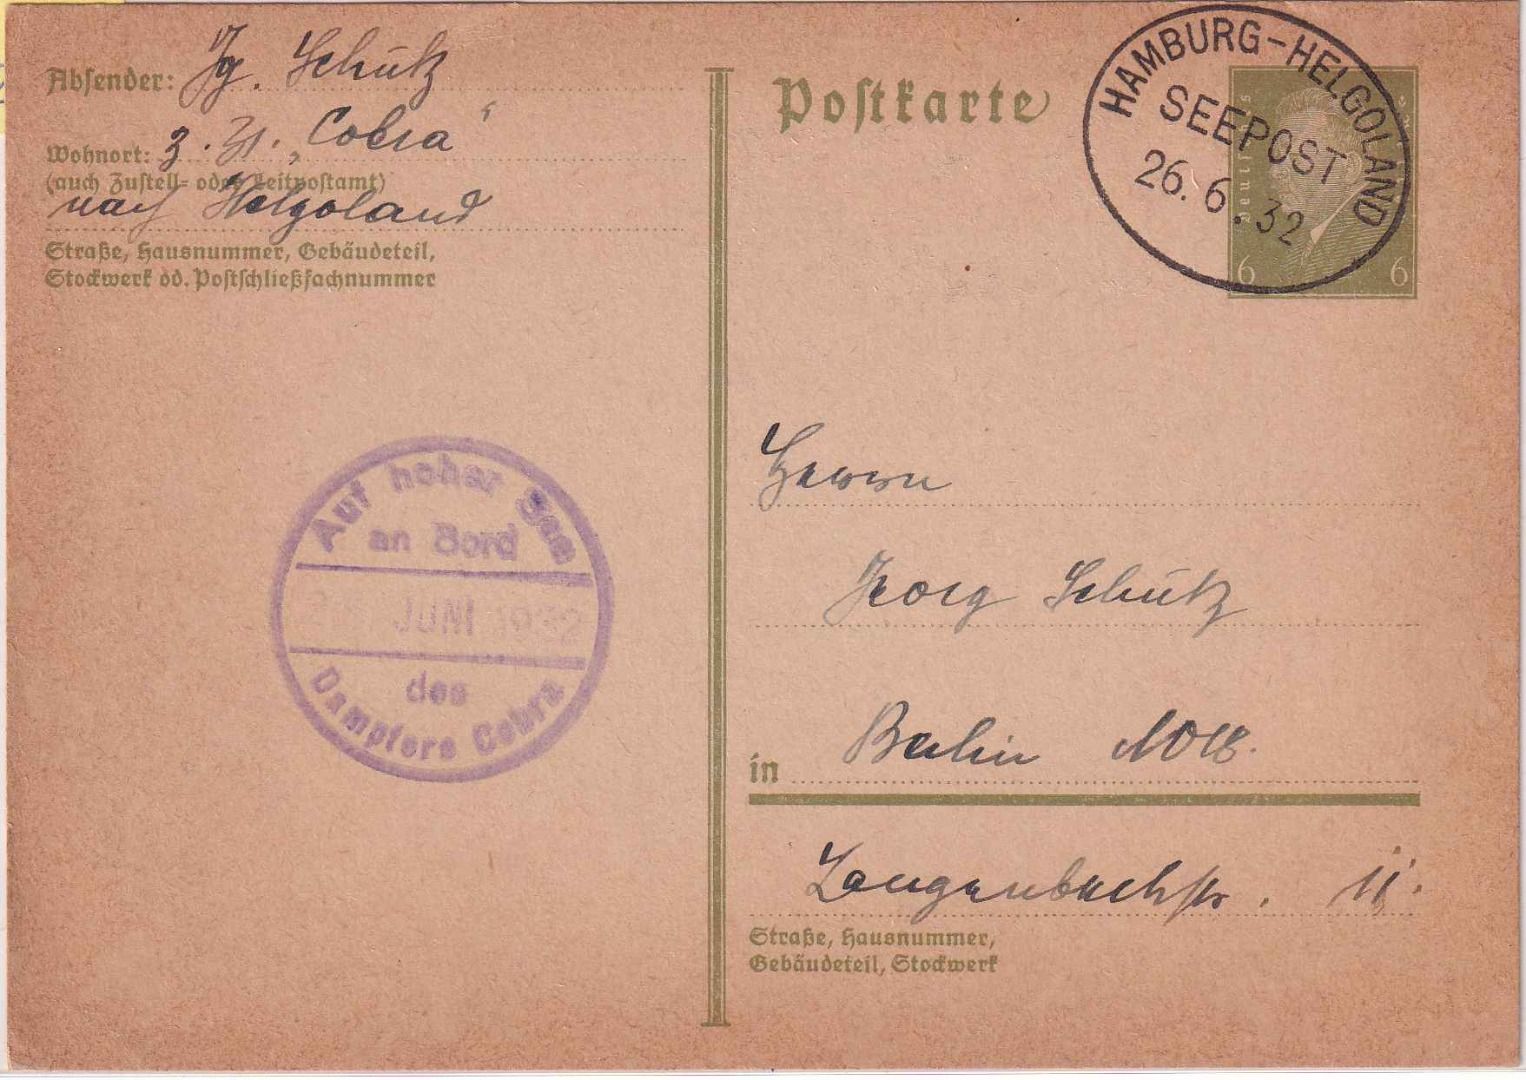 Absender: Jg. Schütz
Wohnort: z. Zt. „Cobra"
(auch Zustell- oder Leitpostamt)
nach Helgoland
Straße, Hausnummer, Gebäudeteil,
Stockwerk od. Postschließfachnummer
Postkarte
HAMBURG-HELGOLAND
SEEPOST
26.6.32
6 6
Auf hoher See
an Bord
JUNI 1932
des
Dampfers Cobra
Herrn
Georg Schütz
in Berlin NO18.
Langenbeckstr. 11.
Straße, Hausnummer,
Gebäudeteil, Stockwerk